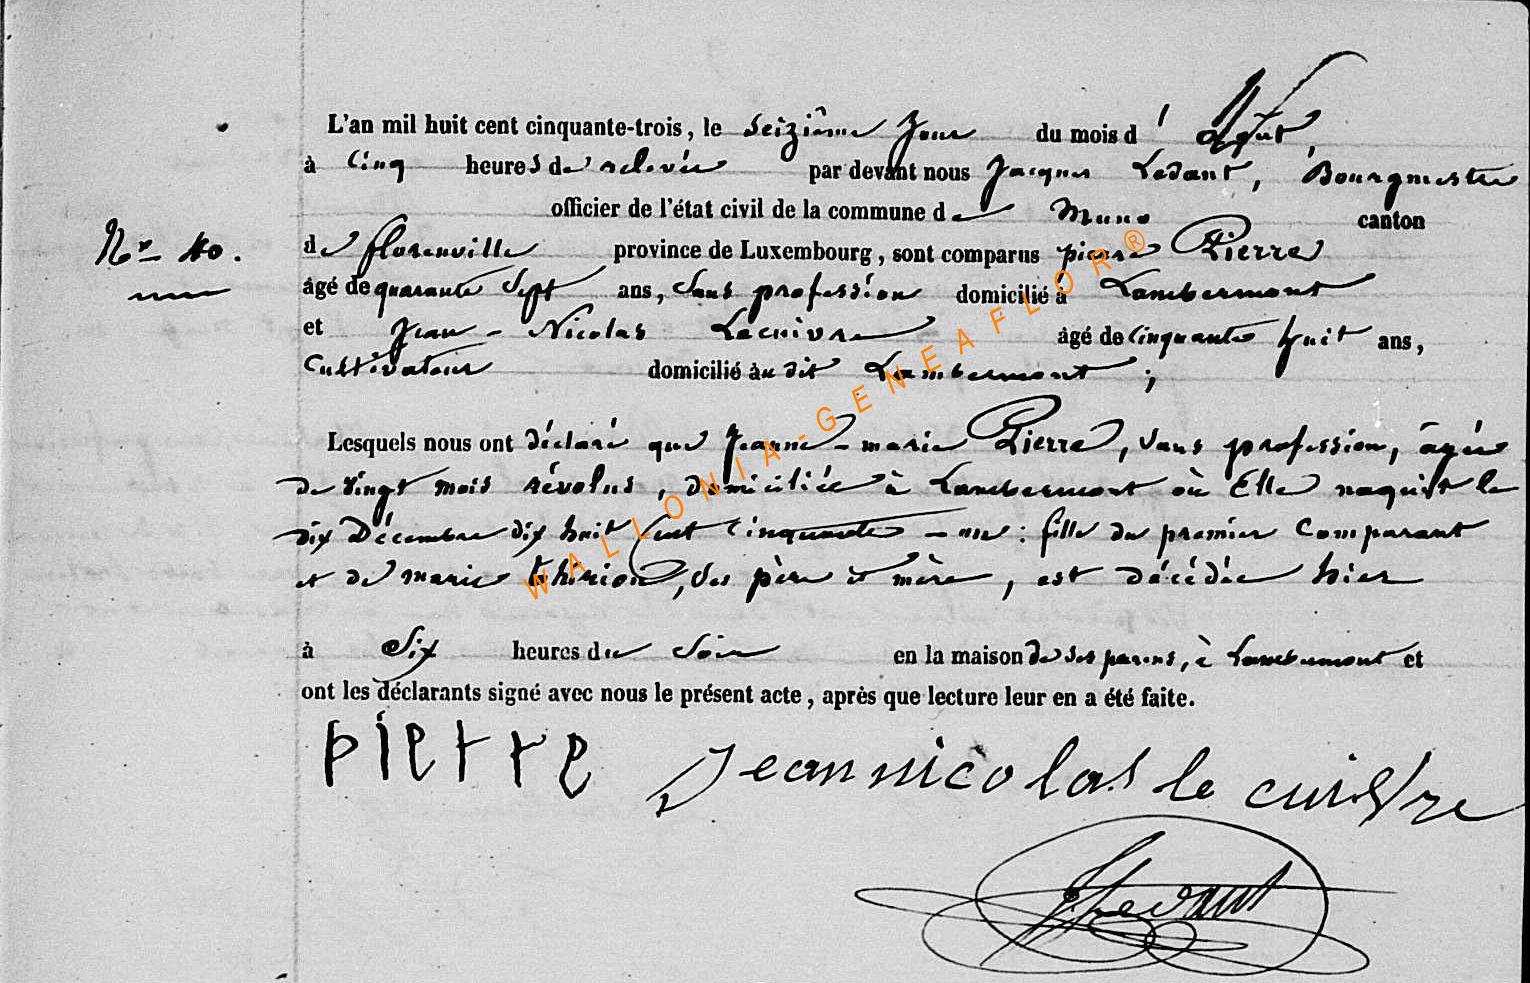 L'an mil huit cent cinquante-trois, le seizième jour du mois d'Août,
à cinq heures de relevée par devant nous Jacques Ledant, Bourgmestre
officier de l'état civil de la commune de Muno canton
N° 40. de florenville province de Luxembourg, sont comparus pierre Pierre
âgé de quarante sept ans, sans profession domicilié à Lambermont
et Jean-Nicolas Lecuivre âgé de cinquante huit ans,
Cultivateur domicilié au dit Lambermont ;
Lesquels nous ont déclaré que Jeanne-marie Pierre, sans profession, âgée
de vingt mois révolus, domiciliée à Lambermont où Elle naquit le
dix Décembre dix huit cent cinquante-un : fille du premier Comparant
et de marie thirion, ses père et mère, est décédée hier
à Six heures du soir en la maison de ses parens, à Lambermont et
ont les déclarants signé avec nous le présent acte, après que lecture leur en a été faite.
pierre Jean nicolas le cuivre
J Ledant
WALLONIA-GENEAFLOR®